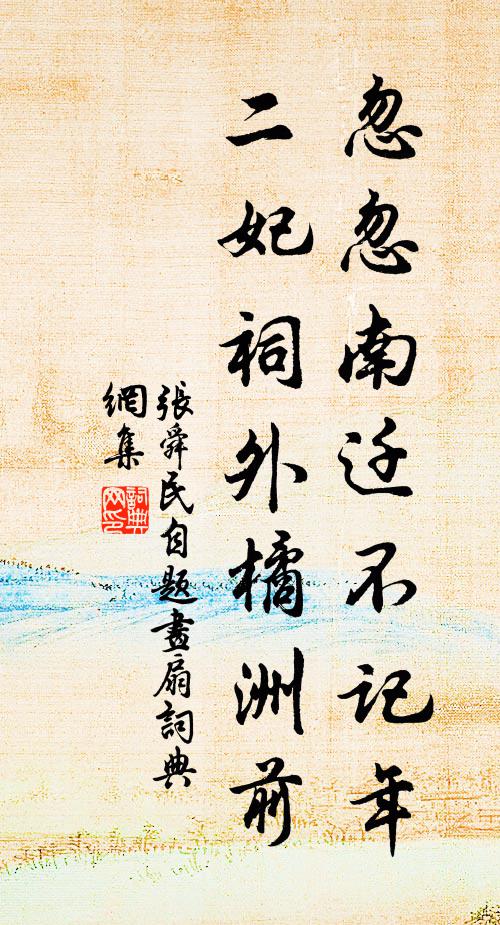 忽忽南迁不记年
二妃祠外橘洲前
張舜民自题畫扇詞典
網集
詞典
网印